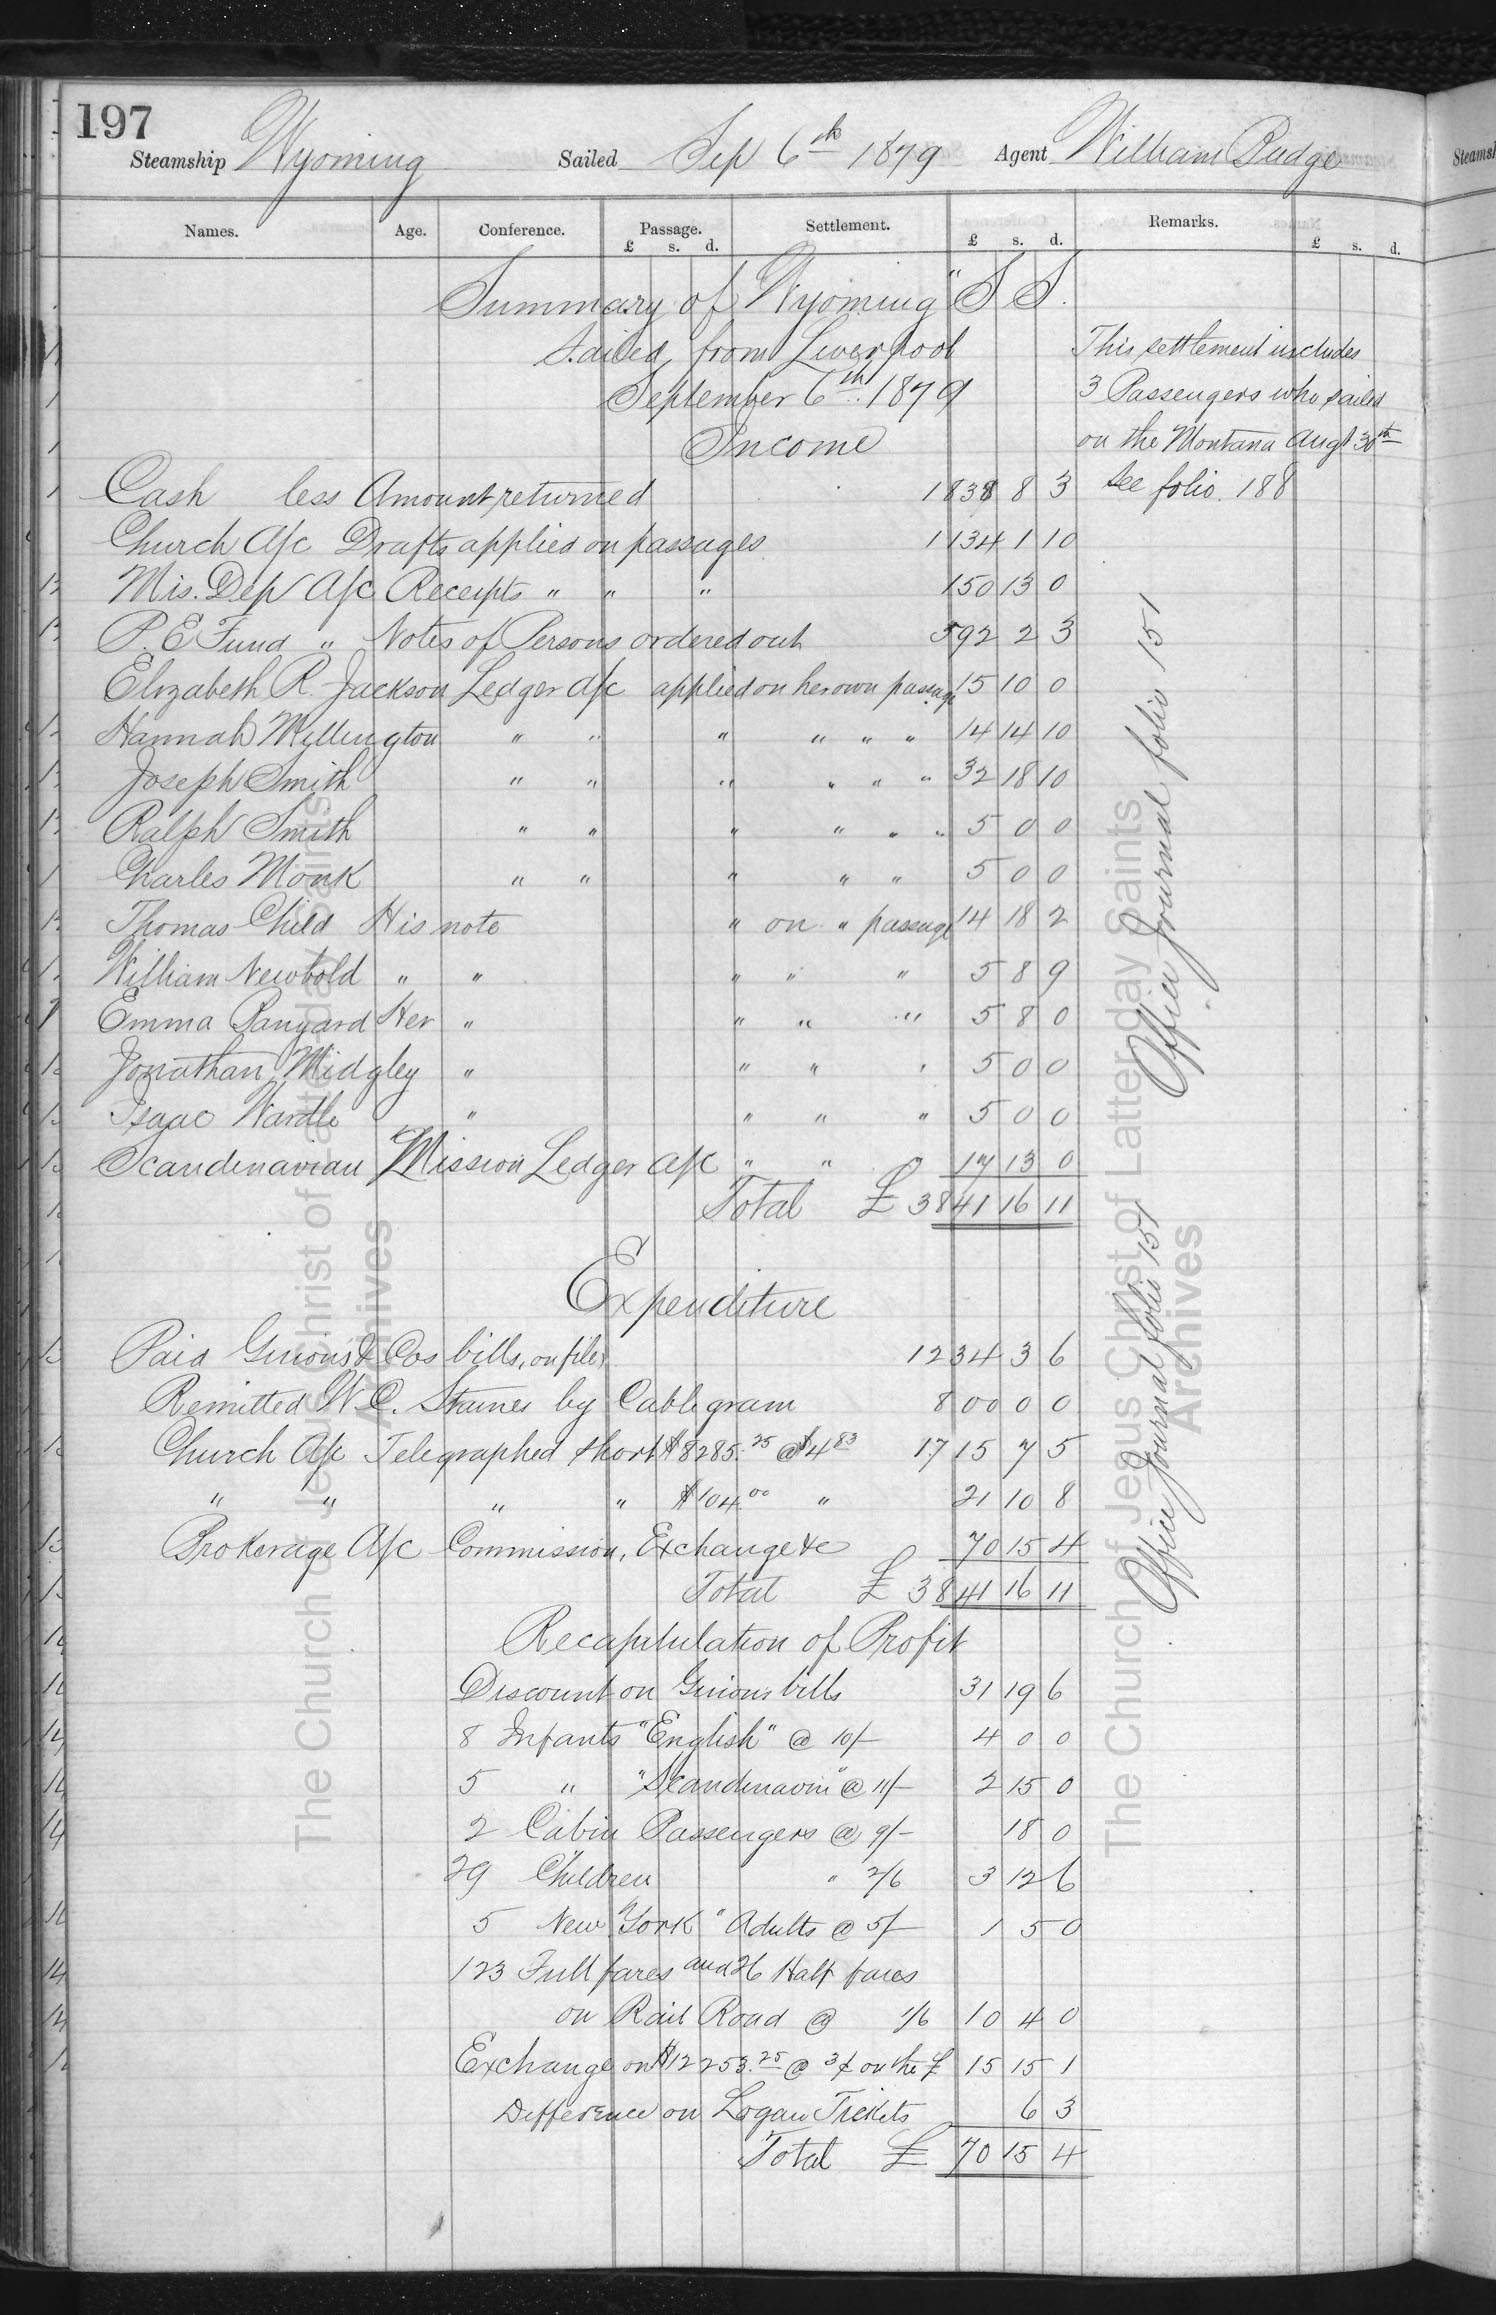 197
Steamship Wyoming Sailed Sep 6th 1879 Agent William Budge
Names. Age. Conference. Passage. Settlement. Remarks.
£ s. d. £ s. d. £ s. d.
Summary of "Wyoming" S S.
Sailed from Liverpool
September 6th 1879
Income
This settlement includes
3 Passengers who sailed
on the Montana Augt 30th
See folio. 188
Cash less Amount returned 1838 8 3
Church A/c Drafts applied on passages 1134 1 10
Mis. Dep A/c Receipts " " " 150 13 0
P. E Fund " Notes of Persons ordered out 592 2 3
Elizabeth R. Jackson Ledger a/c applied on her own passage 15 10 0
Hannah Millington " " " " " " 14 14 10
Joseph Smith " " " " " " 32 18 10
Ralph Smith " " " " " " 5 0 0
Charles Monk " " " " " 5 0 0
Thomas Child His note " on " passage 14 18 2
William Newbold " " " " " 5 8 9
Emma Panyard Her " " " " 5 8 0
Jonathan Midgley " " " " 5 0 0
Isaac Wardle " " " " 5 0 0
Scandinavian Mission Ledger a/c " " " 17 13 0
Total £ 3841 16 11
Office Journal folio 151
Expenditure
Paid Guions & Cos bills, on file, 1234 3 6
Remitted W. C. Staines by Cablegram 800 0 0
Church A/c Telegraphed short $8285.25 @ $4 83 1715 7 5
" " " " $104.00 " 21 10 8
Brokerage A/c Commission, Exchange &c 70 15 4
Total £ 3841 16 11
Office Journal folio 151
Recapitulation of Profit
Discount on Guions bills 31 19 6
8 Infants "English" @ 10/- 4 0 0
5 " "Scandinavin" @ 11/- 2 15 0
2 Cabin Passengers @ 9/- 18 0
29 Children " 2/6 3 12 6
5 "New York" Adults @ 5/- 1 5 0
123 Full fares and 26 Half fares
on Rail Road @ 1/6 10 4 0
Exchange on $12253.25 @ 3¢ on the £ 15 15 1
Difference on Logan Tickets 6 3
Total £ 70 15 4
The Church of Jesus Christ of Latter-day Saints
Archives
The Church of Jesus Christ of Latterday Saints
Archives